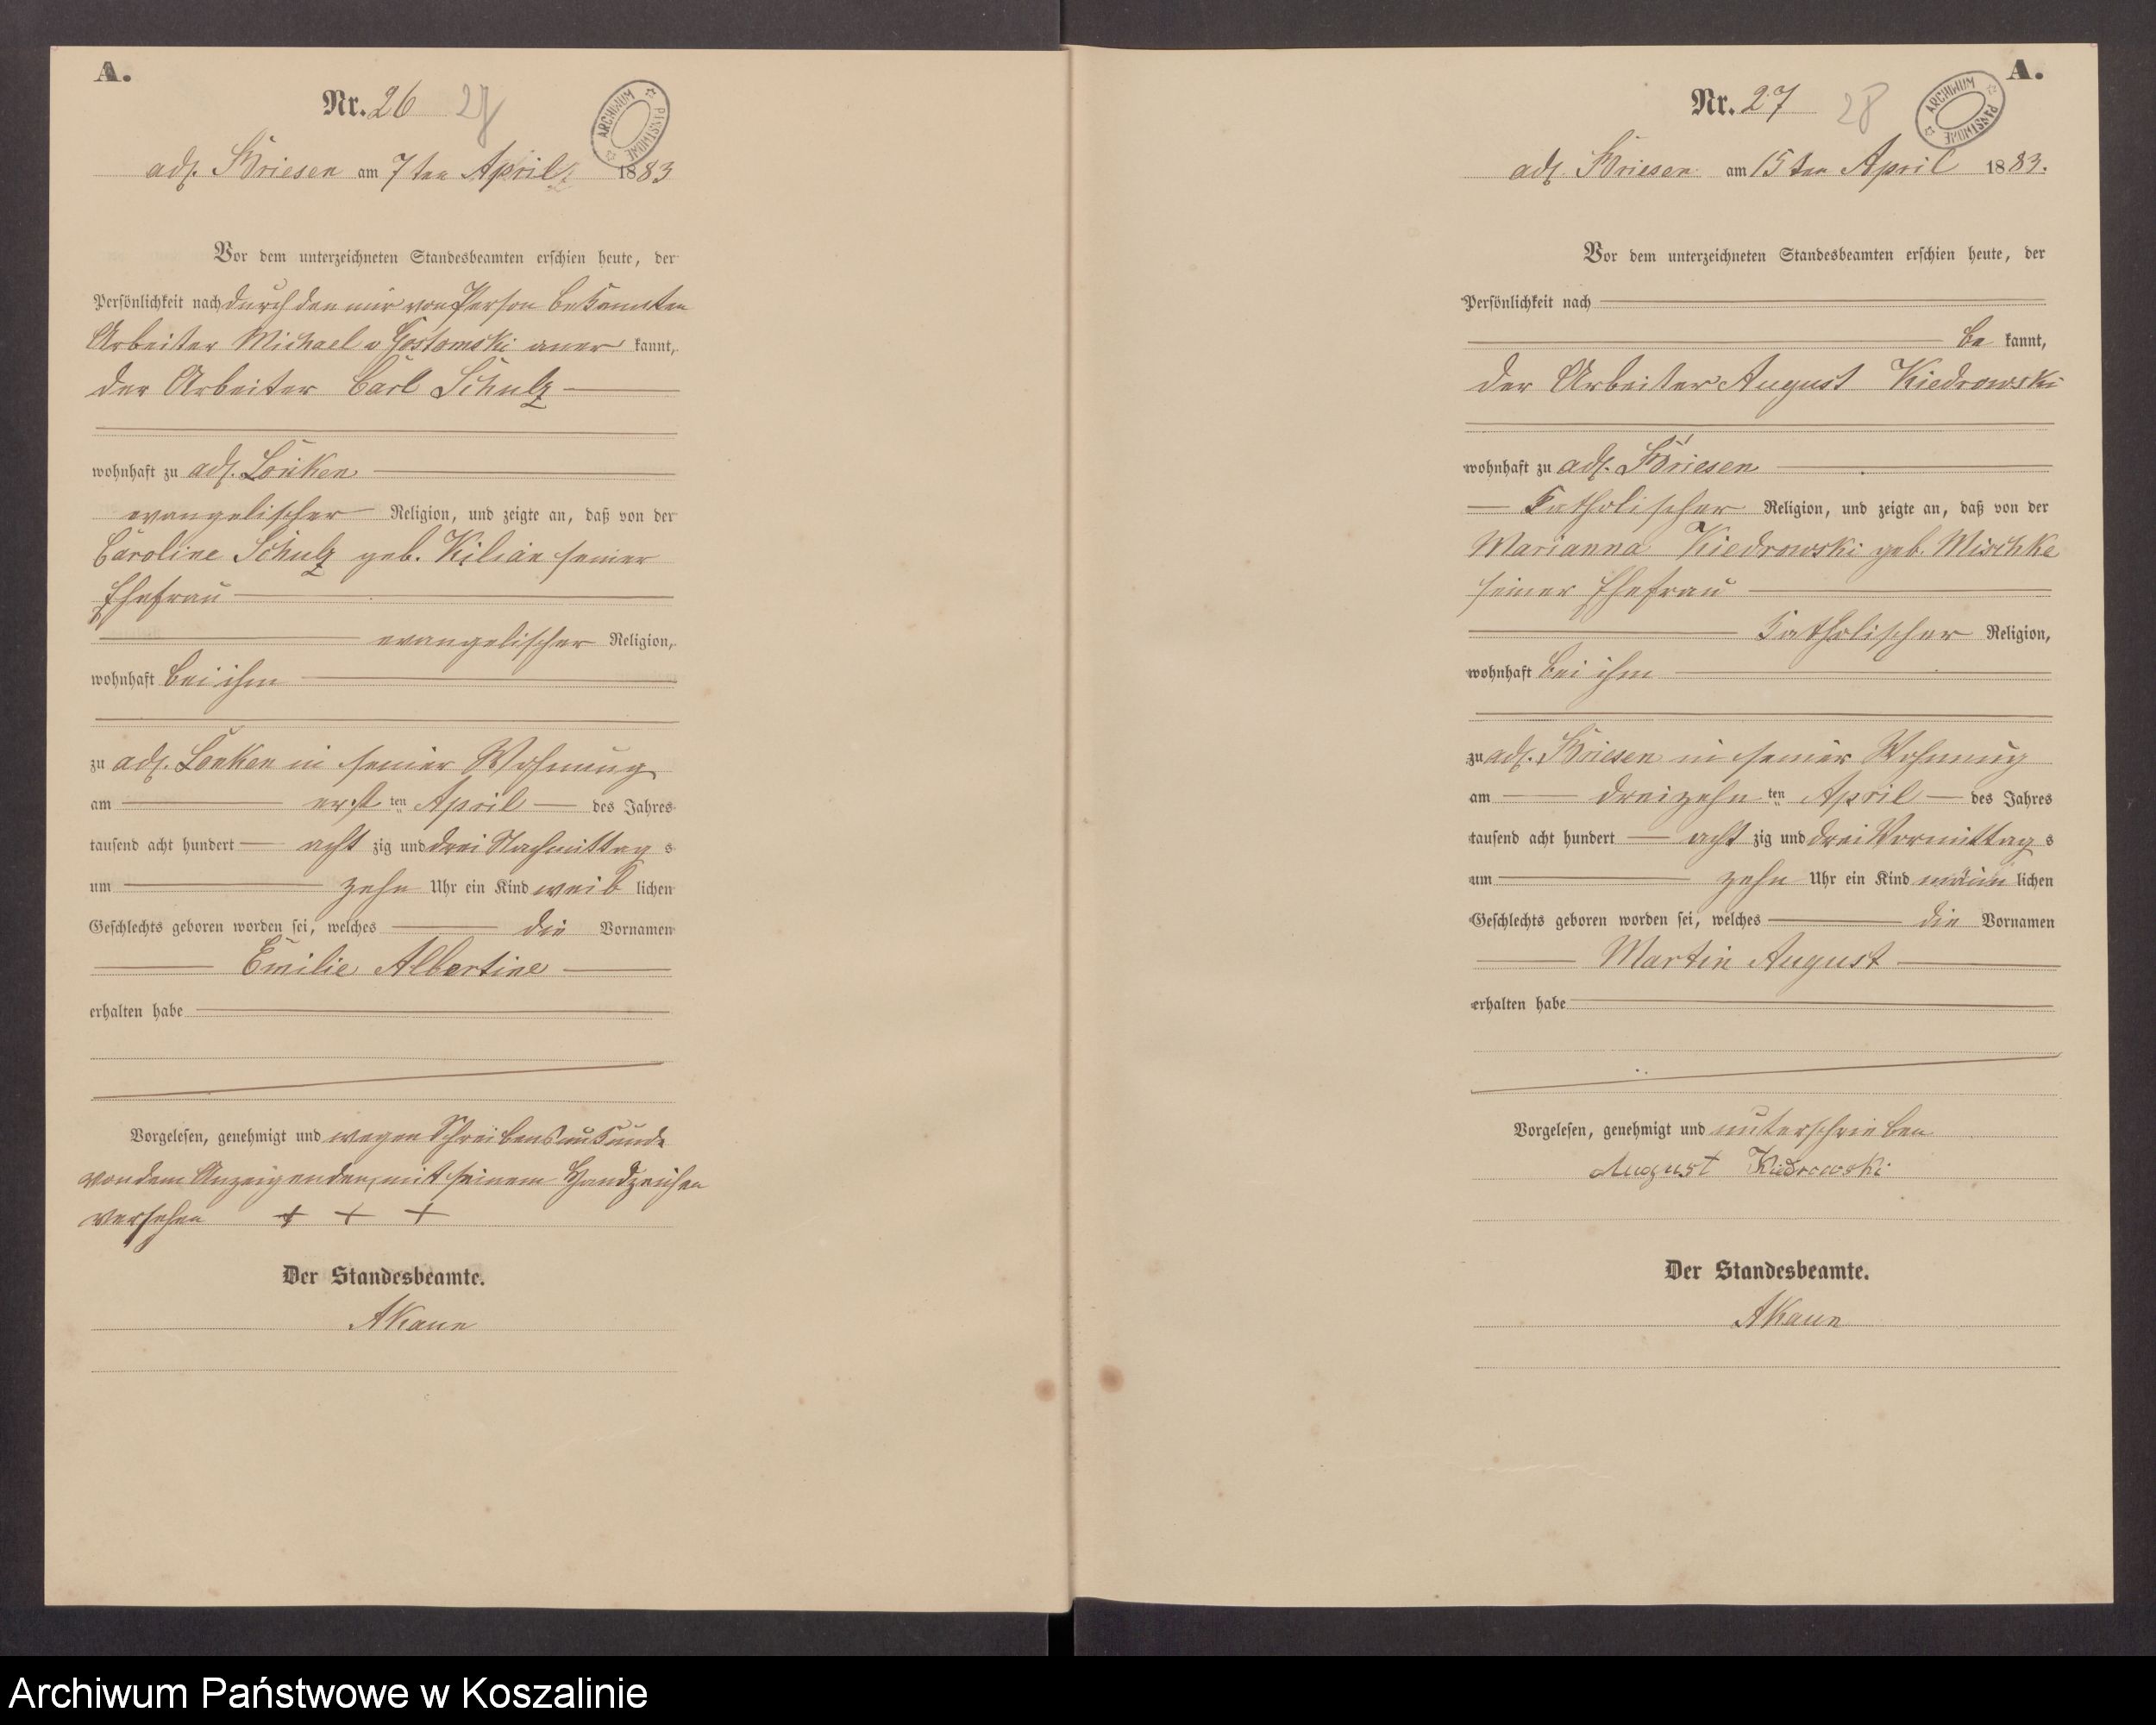 A.
Nr. 26 27
ARCHIWUM PAŃSTWOWE
adl. Briesen am 7ten April 1883
Vor dem unterzeichneten Standesbeamten erschien heute, der
Persönlichkeit nach durch den mir von Person bekannten
Arbeiter Michael v Gostomski aner kannt,
der Arbeiter Carl Schulz
wohnhaft zu adl. Lonken
evangelischer Religion, und zeigte an, daß von der
Caroline Schulz geb. Kilian seiner
Ehefrau
evangelischer Religion,
wohnhaft bei ihm
zu adl. Lonken in seiner Wohnung
am erst ten April des Jahres
tausend acht hundert acht zig und drei Nachmittag s
um zehn Uhr ein Kind weib lichen
Geschlechts geboren worden sei, welches die Vornamen
Emilie Albertine
erhalten habe
Vorgelesen, genehmigt und wegen Schreibensunkunde
von dem Anzeigenden, mit seinem Handzeichen
versehen + + +
Der Standesbeamte.
AKaun
A.
Nr. 27 28
ARCHIWUM PAŃSTWOWE
adl. Briesen am 15ten April 1883.
Vor dem unterzeichneten Standesbeamten erschien heute, der
Persönlichkeit nach
be kannt,
der Arbeiter August Kiedrowski
wohnhaft zu adl. Briesen
katholischer Religion, und zeigte an, daß von der
Marianna Kiedrowski geb. Mischke
seiner Ehefrau
katholischer Religion,
wohnhaft bei ihm
zu adl. Briesen in seiner Wohnung
am dreizehn ten April des Jahres
tausend acht hundert acht zig und drei Vormittag s
um zehn Uhr ein Kind männ lichen
Geschlechts geboren worden sei, welches die Vornamen
Martin August
erhalten habe
Vorgelesen, genehmigt und unterschrieben
August Kiedrowski
Der Standesbeamte.
AKaun
Archiwum Państwowe w Koszalinie